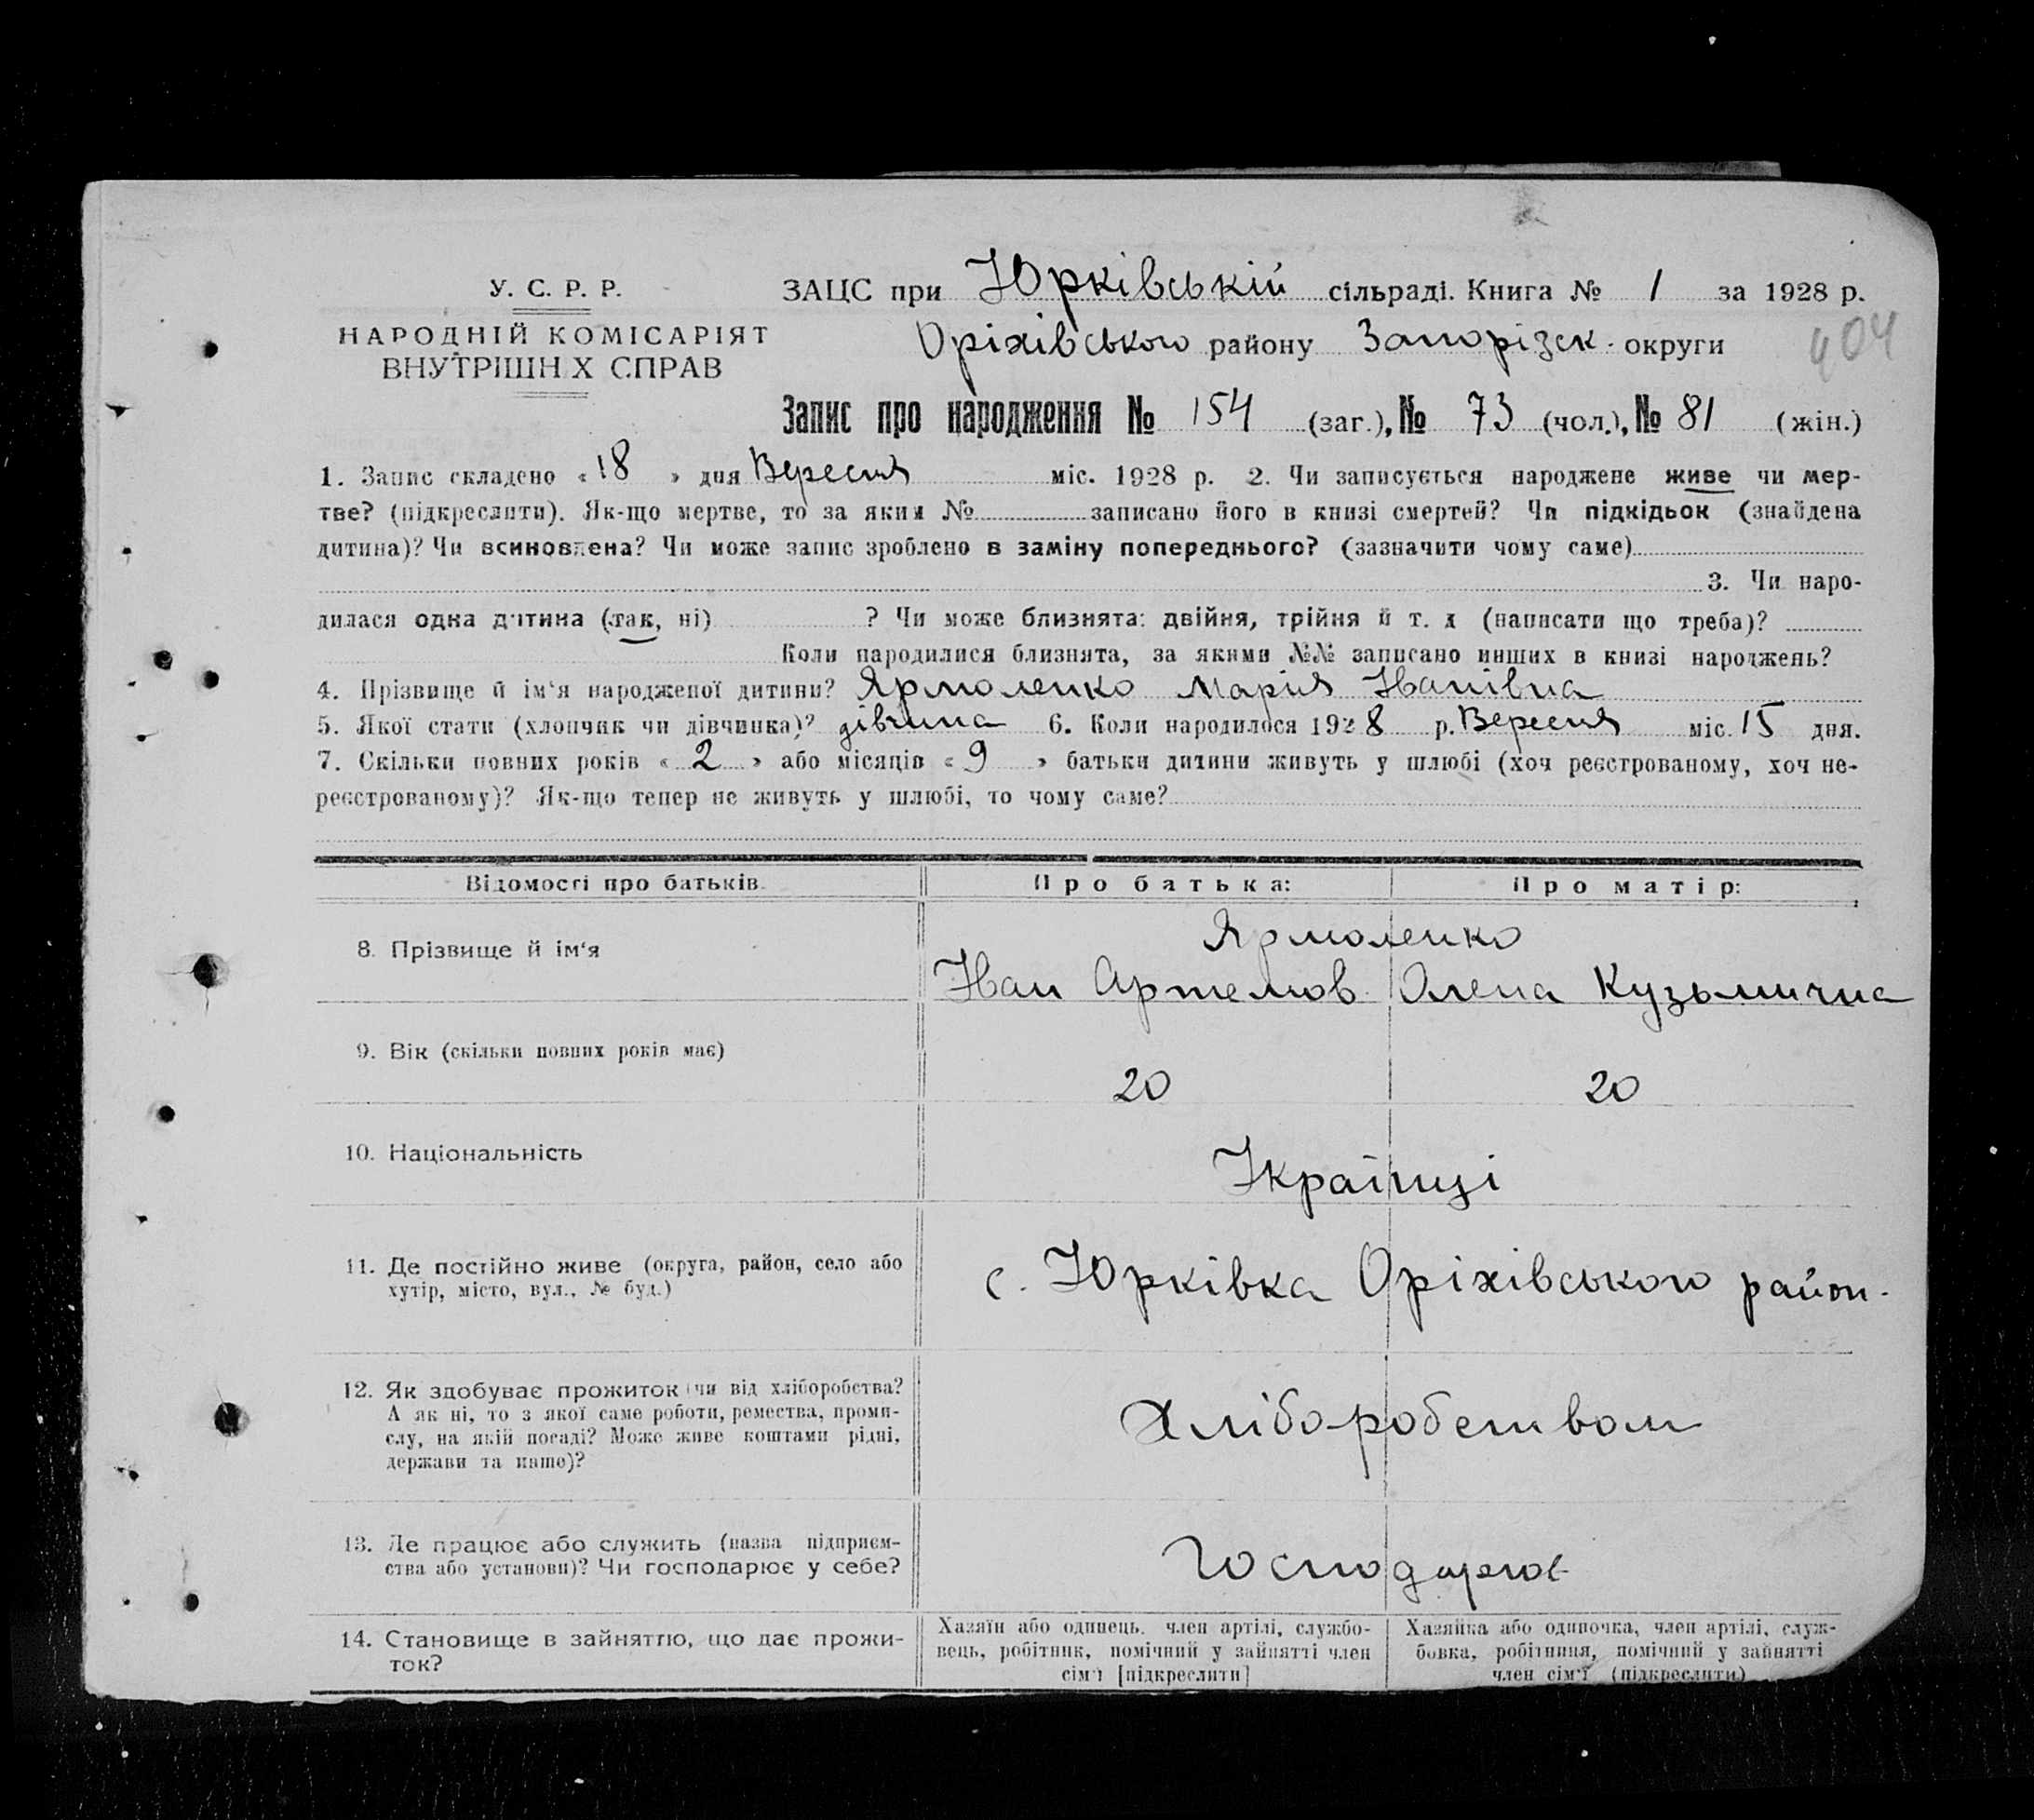 У. С. Р. Р.
НАРОДНІЙ КОМІСАРІЯТ
ВНУТРІШН Х СПРАВ
ЗАЦС при Юрківській сільраді. Книга № 1 за 1928 р.
Оріхівського району Запорізск. округи
404
Запис про народження № 154 (заг.), № 73 (чол.), № 81 (жін.)
1. Запис складено « 18 » дня Вересня міс. 1928 р. 2. Чи записується народжене живе чи мер-
тве? (підкреслити). Як-що мертве, то за яким № записано його в книзі смертей? Чи підкідьок (знайдена
дитина)? Чи всиновлена? Чи може запис зроблено в заміну попереднього? (зазначити чому саме)
3. Чи наро-
дилася одна дитина (так, ні) ? Чи може близнята: двійня, трійня й т. д (написати що треба)?
Коли народилися близнята, за якими №№ записано инших в книзі народжень?
4. Прізвище й ім‘я народженої дитини? Ярмоленко Марія Іванівна
5. Якої стати (хлопчик чи дівчинка)? дівчина 6. Коли народилося 1928 р. Вересня міс. 15 дня.
7. Скільки повних років « 2 » або місяців « 9 » батьки дитини живуть у шлюбі (хоч реєстрованому, хоч не-
реєстрованому)? Як-що тепер не живуть у шлюбі, то чому саме?
Відомості про батьків. Про батька: Про матір:
Ярмоленко
8. Прізвище й ім‘я Іван Артемов. Олена Кузьмична
9. Вік (скільки повних років має) 20 20
10. Національність Українці
11. Де постійно живе (округа, район, село або
хутір, місто, вул., № буд.) с. Юрківка Оріхівського район.
12. Як здобуває прожиток (чи від хліборобства?
А як ні, то з якої саме роботи, ремества, проми-
слу, на якій посаді? Може живе коштами рідні,
держави та инше)? Хліборобством
13. Де працює або служить (назва підприєм-
ства або установи)? Чи господарює у себе? Господарюв
14. Становище в зайняттю, що дає прожи-
ток?
Хазяїн або одинець, член артілі, службо-
вець, робітник, помічний у зайнятті член
сім‘ї [підкреслити]
Хазяйка або одиночка, член артілі, служ-
бовка, робітниця, помічний у зайнятті
член сім‘ї (підкреслити)